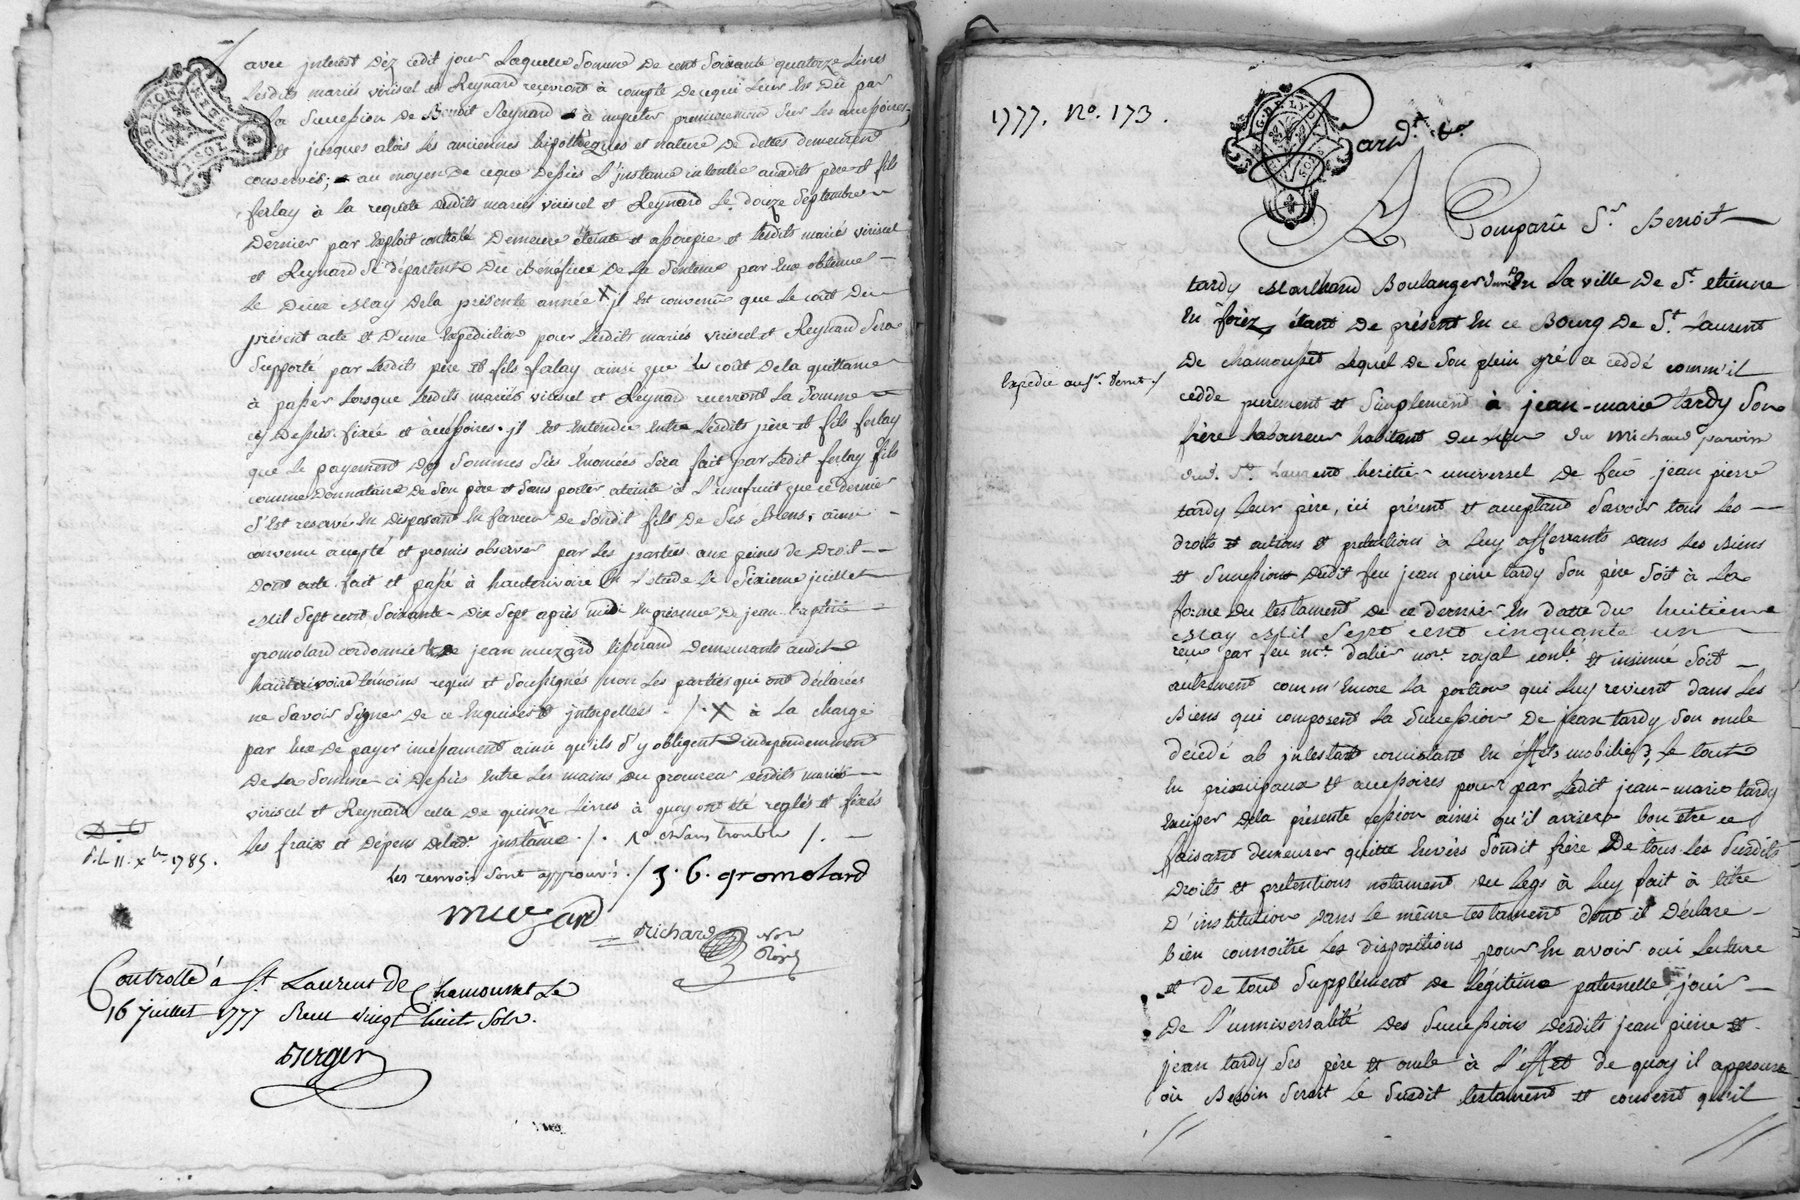 avec interest dèz cedit jour Laquelle Somme De cent Soixante quatorze Livres
Lesdits mariés viricel et Reynard recevront à compte de ce qui Leur Est Dû par
La Succession de Benoit Reynard à imputer premierement Sur Les accessoires,
et jusques alors Les anciennes hipothèques et nature De dettes demeurent
conservés; au moyen De ceque Dessus L'instance intentée auxdits père et fils
ferlay à La requête desdits mariés viricel et Reynard Le douze Septembre
Dernier par Exploit controllé Demeure éteinte et assoupie et Lesdits mariés viricel
et Reynard Se départent Du Bénéfice De La Sentence par Eux obtenue
Le Deux May Dela présente année X il Est convenu que Le coût Du
présent acte et D'une Expédition pour Lesdits mariés viricel et Reynard Sera
Supporté par Lesdits père et fils ferlay ainsi que Le coût Dela quittance
à passer Lorsque Lesdits mariés viricel et Reynard recevront La Somme
cy Dessus fixée et accessoires. il Est Entendu Entre Lesdits père et fils ferlay
que Le payement Des Sommes Sus Enoncées Sera fait par Ledit ferlay fils
comme Donnataire De Son père et Sans porter atteinte à L'usufruit que ce dernier
S'Est reservé En Disposant En faveur De Sondit fils De Ses Biens; ainsi
convenu accepté et promis observer par Les parties aux peines de Droit
Dont acte fait et passé à hauterivoire En L'étude Le Sixieme juillet
Mil Sept cent Soixante-Dix Sept après midi En présence de jean baptiste
gromolard cordonnier et De jean muzard tisserand Demeurants audit
hauterivoire témoins requis et Soussignés non Les parties qui ont déclarées
ne Savoir Signer De ce Enquises et interpellées ./. X à La charge
par Eux De payer incessament ainsi qu'ils S'y obligent independemment
De La Somme ci Dessus Entre Les mains du procureur desdits mariés
viricel et Reynard celle De quinze Livres à quoy ont été reglés et fixés
Les fraix et Dépens deladte instance ./.
Les renvois Sont approuvés ./. J. B. gromolard
D. le 11. xbre 1785.
muzard
Richard Nore
Royal
Controllé à St. Laurent De Chamousset Le
16 juillet 1777 Reçu vingt huit Sols.
Verger
1777. No. 173.
GEN. DE LYON
Pardt. &a.
A Comparû Sr. Benoit
tardy Marchand Boulanger En La ville De St. Etienne
En forèz étant De présent En ce Bourg De St. Laurent
De chamousset Lequel De Son plein gré a ceddé comm'il
cedde purement et Simplement à jean-marie tardy Son
frère Laboureur habitant du lieu du Michaud paroisse
dud. St. Laurent heritier universel De feu jean pierre
tardy Leur père, ici présent et acceptant Savoir tous Les
droits et actions et prétentions à Luy afferrants dans Les Biens
et Succession dudit feu jean pierre tardy Son père Soit à La
forme du testament De ce Dernier En datte du huitième
May Mil Sept cent cinquante un
reçu par feu me. Dalier nore. royal contlé et insinué Soit
autrement comm'Encore La portion qui Luy revient dans Les
Biens qui composent La Succession De jean tardy Son oncle
décédé ab intestat consistant En Effets mobiliers; Le tout
En principaux et accessoires pour par Ledit jean-marie tardy
Exciper Dela présente cession ainsi qu'il avisera bon être ce
faisant demeurer quitte Envèrs Sondit frère De tous Les Susdits
Droits et prétentions notament du Legs à Luy fait à titre
D'institution dans Le même testament dont il Déclare
bien connoitre Les dispositions pour En avoir oui Lecture
et De tout Supplément De Légitime paternelle, jouir
De L'unniversalité Des Successions desdits jean pierre et
jean tardy Ses père et oncle à L'Effet de quoy il approuve
où Besoin Seroit Le Susdit testament et consent qu'il
Expedié au Sr. Benoit ./.